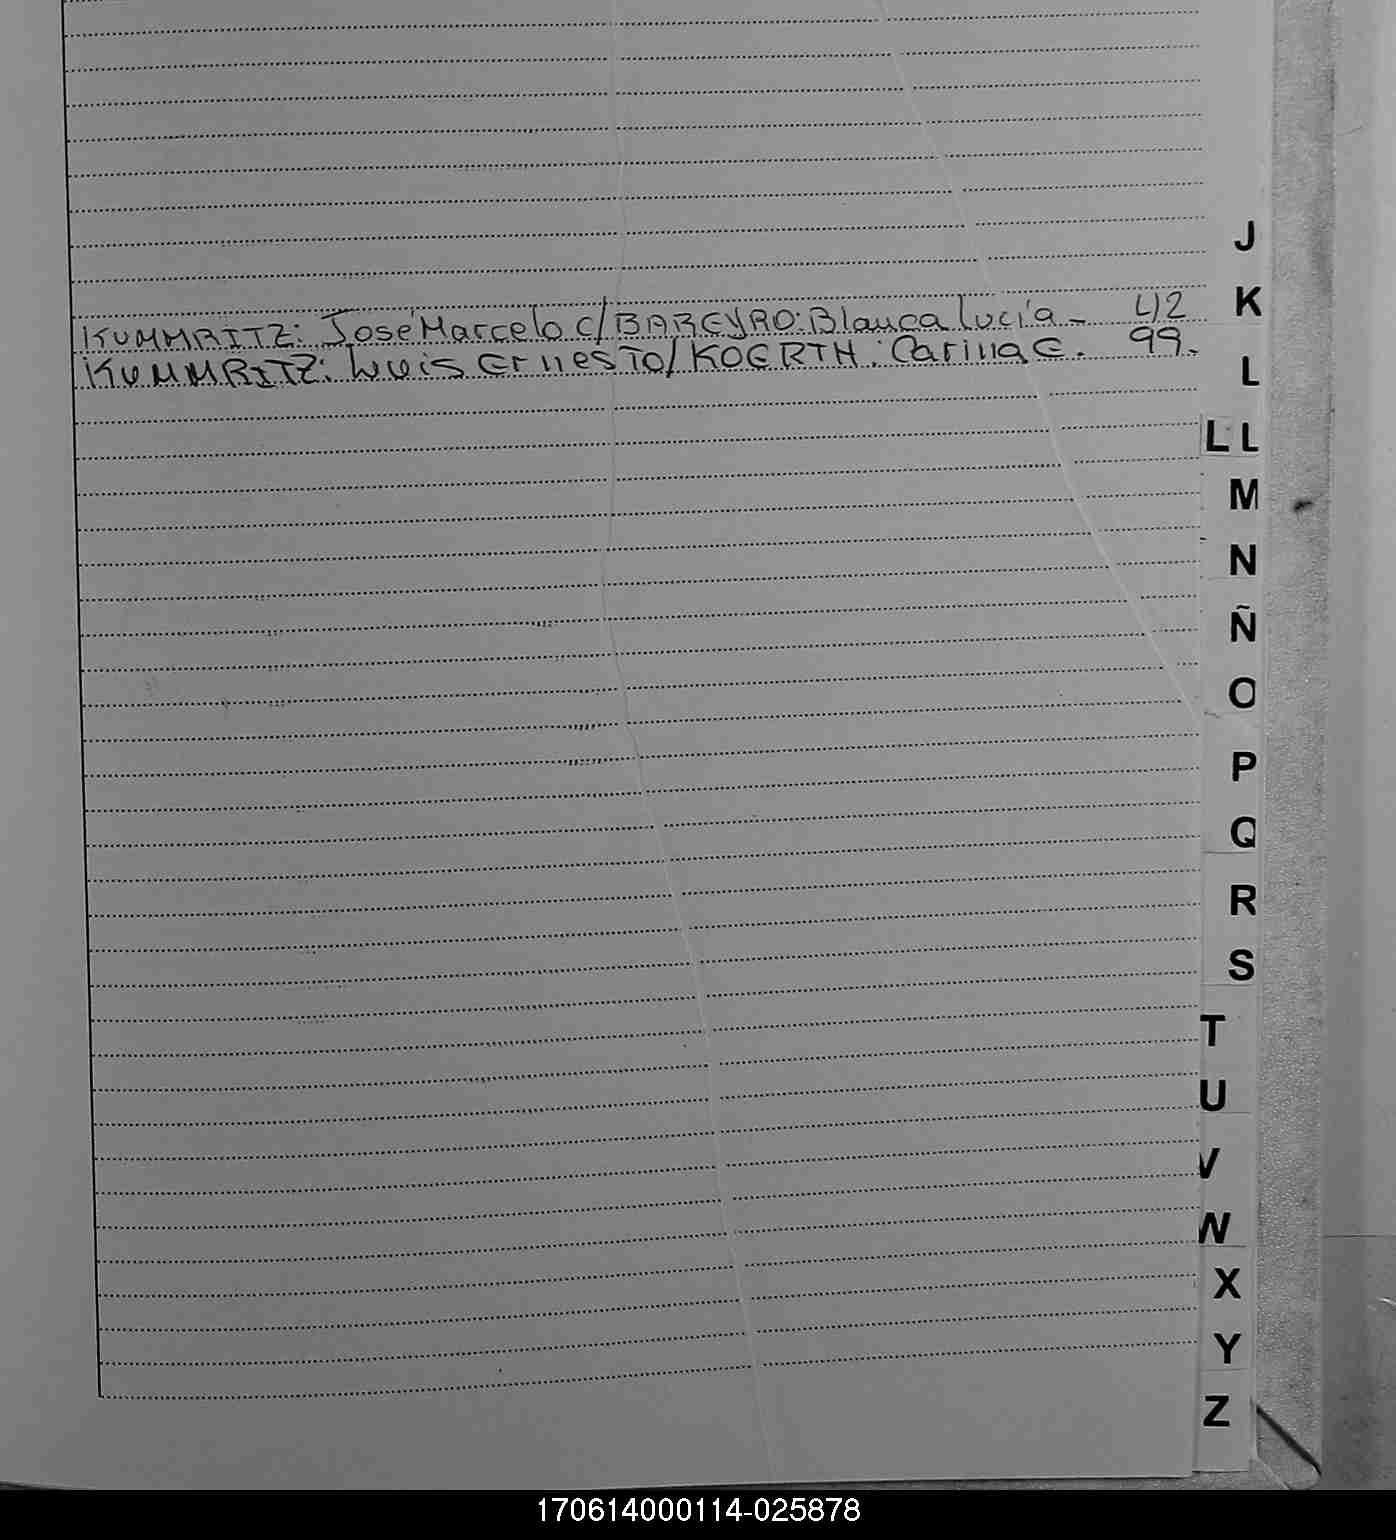 KUMMRITZ: José Marcelo c/BARGYRO: Blanca Lucía - 42
KUMMRITZ: Luis Ernesto/KOERTH: Carina E. 99.-
J
K
L
LL
M
N
Ñ
O
P
Q
R
S
T
U
V
W
X
Y
Z
170614000114-025878